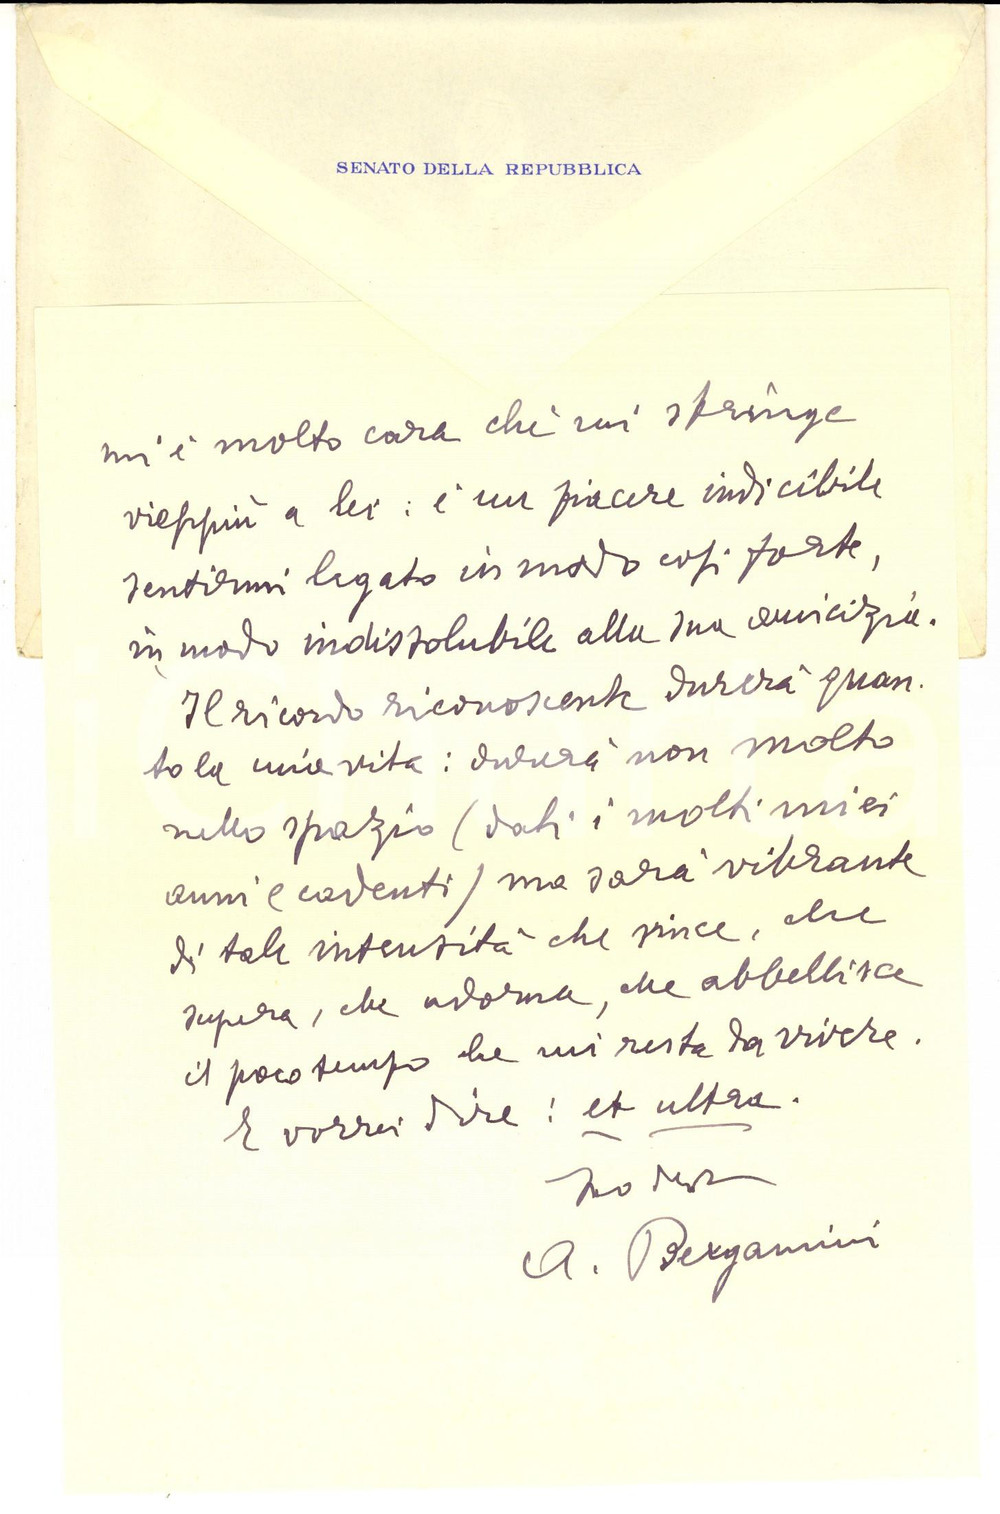 SENATO DELLA REPUBBLICA
mi è molto cara che mi stringe
vieppiù a lei : è un piacere indicibile
sentirmi legato in modo così forte,
in modo indissolubile alla sua amicizia.
Il ricordo riconoscente durerà quan-
to la mia vita : durerà non molto
nello spazio (dati i molti miei
anni e cadenti) ma sarà vibrante
di tale intensità che vince, che
supera, che adorna, che abbellisce
il poco tempo che mi resta da vivere.
E vorrei dire : et ultra.
Suo
A. Bergamini